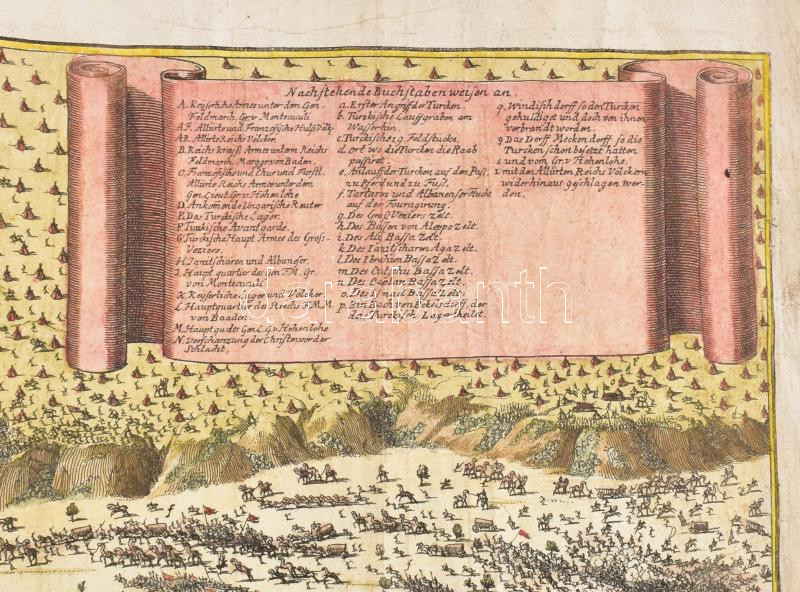 Nachstehende Buchstaben weisen an.
A. Keyserliche Armee unter dem Gen.
Feldmarch. Gr. v Montecuculi
A.F. Allürte und Französische Hülfs Völk
AR. Allürte Reichs Völcker.
B. Reichs kraiß Armee unterm Reichs
Feldmarch. Marggr. von Baden.
C. Französische und Chur und Fürstl.
Allürte Reichs Armee unter dem
Gen. Lieut. Gr. v Hohenlohe
D. Ankomende Ungarische Reuter
E. Das Türckische Lager.
F. Türkische Avantgarde.
G. Türckische Haupt Armee des Gross-
Veziers.
H. Janitscharen und Albaneser.
I. Haupt quartier des Gen. F.M. Gr.
von Montecuculi
K. Keyserliche Lager und Völcker.
L. Hauptquartier der Reichs F.M.M
von Baaden
M. Haupt qu. der Gen. L. G. v Hohenlohe
N. Verschanzung der Christen vor der
Schlacht,
a. Erster Angriff der Türcken.
b. Türckische Lauffgraben am
Wasser hin.
c. Türckische 19. Feldstücke.
d. ort wo die Türcken die Raab
passirt.
e. Anlauf der Türcken auf den Paß,
zu Pferd und zu Fuß.
f. Tartarn und Albaneser flucht
auf der Fouragirung.
g. Des Groß Veziers zelt.
h. Des Bassen von Aleppo zelt.
i. Des Ali Bassa Zelt.
k. Des Janitscharen Aga Zelt.
l. Des Ibrahim Bassa Zelt.
m Des Bassa Zelt.
n. Des Caplan Bassa Zelt.
o. Des Ismael Bassa Zelt.
p. Ein Bach von der
das Türckisch Lager theilet.
q. Windisch dorff so den Türcken
gehuldiget und doch von ihnen
verbrandt worden.
9 Das Dorff Mecken dorff so die
Türcken schon besetzt hatten
s und vom Gr. v Hohenlohe.
x mit den Allürten Reichs Völckern
wider hinaus geschlagen wor-
den.
darabanth